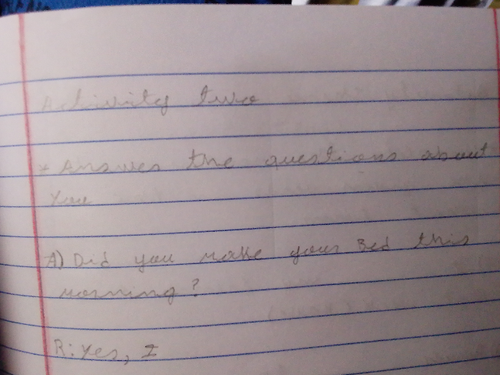 Activity two
* Answer the questions about
you
A) Did you make your Bed this
morning?
R: Yes, I